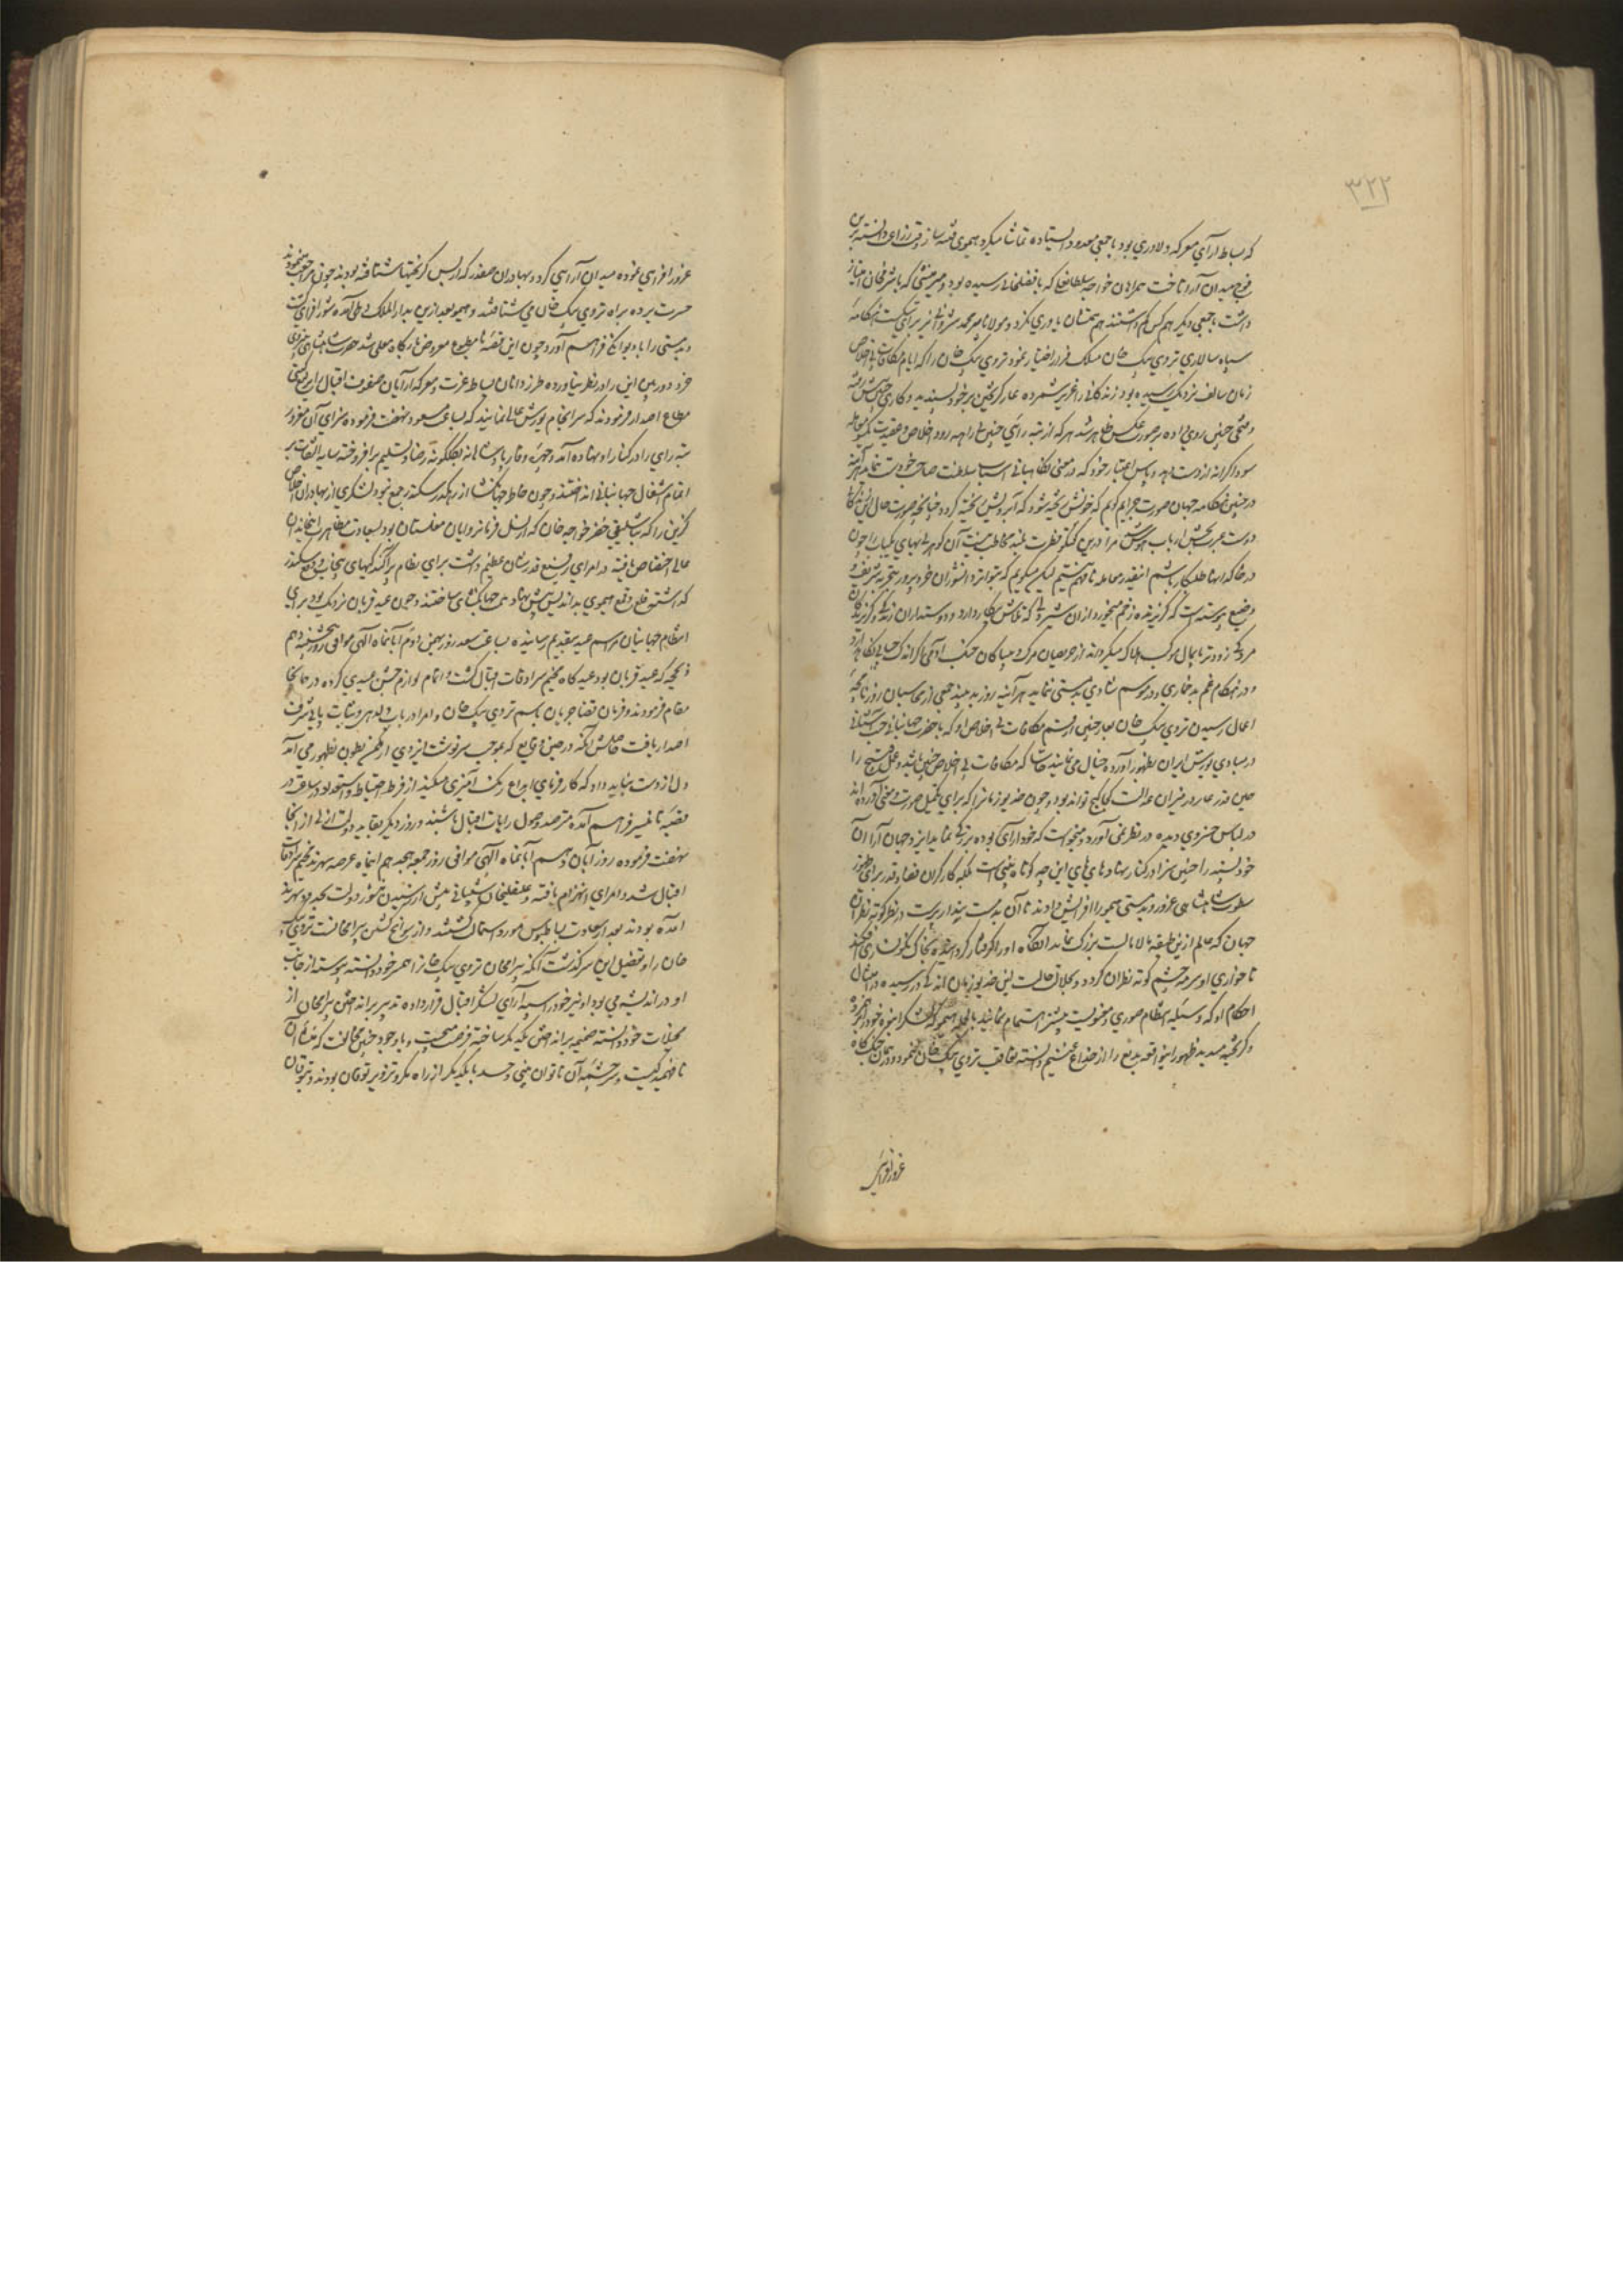 ۳۲۲
که بساط آرای معرکه دلاوری بود با جمعی معدود ایستاده تماشا میکرد هیموی
فوج میدان آرا تاخت همراهان خواجه سلطانعلی که بافضلخانی رسیده بود و میرمنشی که باشرفخان امتیاز
داشت با جمعی دیگر هم همتان یاوری نکرد و مولانا پیر محمد شروانی نیز برای شکست هنگامهٔ
سپاه سالاری تردی بیک خان مسلک فرار اختیار نمود تردی بیک خان را که ایام مکافات بی اخلاص
زمان سالف نزدیک رسیده بود زندگانی را غنیمت شمرده عار گریختن بر خود پسندید و کاری چنین
و فتحی چنین روی داده بر صورت عکس ظاهر شد هر که از رتبه اخلاص و عقیدت
سوداگرانه از دست دهد و پاس اعتبار خود که در معنی نگاهبانی اسباب سلطنت صاحب خود است ننماید هر آینه
در چنین هنگامه جهان صورت چرا که خونش ریخته شود که آبرویش ریخته گردد چنانچه صورت حال
درست عبرت بخش ارباب هوش مرا درین گفتگو فطرت بلند مخاطب نیست آن گوهر بی بهای کمیاب را چون
در خاکدان طلبگار باشم اینقدر معامله نافهم نیستیم لیکن میگویم که بتواتر دانشوران خرد پرور بتجربه شریف و
وضیع پیوسته است که گریزنده زخم میخورد از آن شیردلی که تلاش پیکار دارد و دوستداران زندگی و گریزندگان
مردگی زودتر پایمال موکب هلاک میگردند از حریصان مرگ و بیباکان جنگ آدمی اگر اندک حیا نگاه دارد
و در هنگام غم بدخماری و در موسم شادی بدمستی ننماید هر آینه روز بد نبیند جمعی از محاسبان روزنامچه
اعمال رسیدن تردی بیک خان بعار چنین از قسم مکافات بی اخلاصی او که با حضرت جهانبانی جنت آشیانی
در مبادی یورش ایران بظهور آورده خیال می نمایند حاشا که مکافات بی اخلاصی چنین باشد و عمل قبیح را
همین قدر عار در میزان عدالت کجا گنج تواند بود و چون خدیو زمانه را که برای تکمیل صورت و معنی آورده اند
در لباس خسروی دیده در نظر نمی آورد و میخواست که خودآرای بوده بزرگی نماید ایزد جهان آرا آن
خودپسند را چنین سزا در کنار نهاد های های این چه کوتاه بینی است بلکه کارگران قضا و قدر برای ظهور
سطوت شاهنشاهی غرور و بدمستی هیمو را افزایش دادند تا آن بدمست پندار پرست در نظر کوته نظران
جهان که عالم ازین طبقه مالامال است بزرگ نماید آنگاه او را گرفتار کرده بخاک نگونساری افکند
تا خواری او سرمه چشم کوته نظران گردد و جلالت حالت این خدیو زمان اندکی در رسیده در امتثال
احکام او که وسیله انتظام صوری و معنویست بیشتر اهتمام نمایند بالجمله هیمو که لشکر انبوه خود را
و گریخته میدید ظهور اینواقعه بدیع را از خداع غنیم دانسته تعاقب تردی بیک خان ننمود و در همان جنگ گاه
غرور افزایی
غرور افزایی نموده میدان آرایی کرد و بهادران صفدر که از پس گریختها شتافته بودند چون مراجعت نمودند
حسرت برده براه تردی بیک خان می شتافتند و هیمو بعد ازین بدارالملک دهلی آمده شور افزای گشت
و بدمستی را با دیوانگی فراهم آورد و چون این قصه نامطبوع معروض بارگاه معلی شد حضرت شاهنشاهی
خرد دوربین این را در نظر نیاورده طرزدانان بساط عزت و معرکه آرایان صفوف اقبال را یرلیغ
مطاع اصدار فرمودند که سرانجام یورش عالی نمایند که بساعت مسعود نهضت فرموده سزای آن مغرور
تبه رای را در کنار او نهاده آید و چهره وقار پادشاهانه بگلگونه رضا و تسلیم برافروخته سایه التفات بر
اتمام اشغال جهانبانی انداختند و چون خاطر جهانگشا از رهگذر سکندر جمع نبود لشکری از بهادران اخلاص
گزین را که بباشلیقی خضر خواجه خان که از نسل فرمانروایان مغلستان بود بسعادت مصاهرت
عالی اختصاص یافته در امرای رفیع قدر شان عظیم داشت برای نظام پراگندگیهای پنجاب و دفع سکندر
گذاشتند و قلع و قمع هیموی بداندیش پیش نهاد همت جهانگشای ساختند و چون عید قربان نزدیک بود برای
انتظام جهانیان مراسم عید بتقدیم رسانیده بساعت سعد روز بهمن دوم آبانماه الهی موافق روز پنجشنبه دهم
ذیحجه که عید قربان بود عیدگاه مخیم سرادقات اقبال گشت و اتمام لوازم جشن عیدی کرده در همانجا
مقام فرمودند و فرمان قضا جریان باسم تردی بیک خان و امرا در باب دلدهی و ثبات پایی شرف
اصدار یافت حاصلش آنکه درین وقایع که بموجب سرنوشت ایزدی از مکمن بطون بظهور می آید
دل از دست نباید داد که کارفرمای ابداع رنگ آمیزی میکند از فرط احتیاط و استعداد در ساعت در
قصبه تهانیسر فراهم آمده مترصد وصول رایات اقبال باشند و روز دیگر بقاید دولت از آنجا
نهضت فرموده روز آبان دهم آبانماه الهی موافق روز جمعه هجدهم اینماه عرصه سهرند مخیم سرادقات
اقبال شد و امرای انهزام یافته و علیقلیخان شیبانی پیش از رسیدن منشور دولت بحدود سهرند
آمده بودند بعد از سعادت بساط بوس مورد استمالت گشتند و از سوانح کشتن بیرامخان است تردی بیک
خان را و تفصیل این سرگذشت آنکه بیرامخان تردی بیک خان را همسر خود دانسته پیوسته از جانب
او در اندیشه می بود او نیز خود را سپه آرای لشکر اقبال قرار داده تدبیر برانداختن بیرامخان از
مخیلات خود دانسته ضمیمه برانداختن یکدیگر ساخته فرصت میجست و با وجود چنین مخالفت که منشأ آن
نافهمیدگیست و سرچشمه آن ناتوان بینی و حسد با یکدیگر از راه مکر و تزویر توقان بودند و